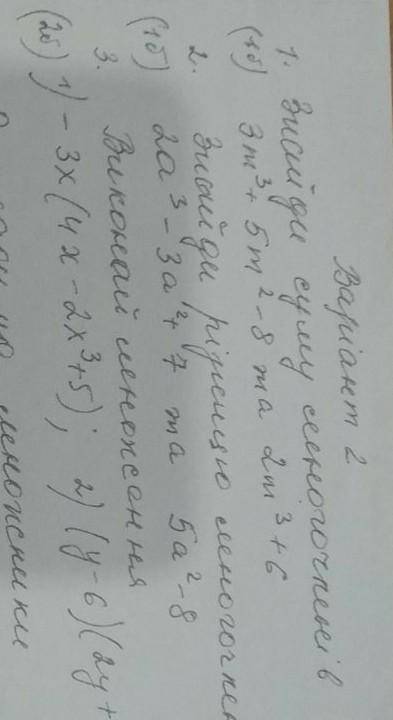 Варіант 2
1. Знайди суму многочленів
(1б) 3m³ + 5m² - 8 та 2m³ + 6
2. Знайди різницю многочлен
(1б) 2a³ - 3a² + 7 та 5a² - 8
3. Виконай множення
(2б) 1) - 3x(4x - 2x³ + 5); 2) (y - 6)(2y +
множники